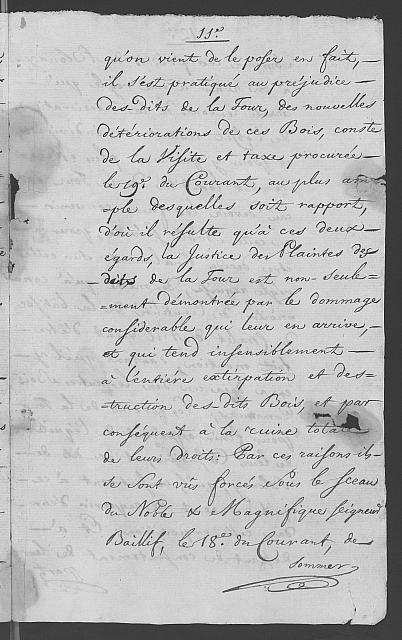 11.
qu'on vient de le poser en fait, —
il s'est pratiqué au préjudice —
des-dits de la Tour des nouvelles
détériorations de ces Bois, conste
de la Visite et taxe procurée —
le 19.e du Courant, au plus am=
=ple desquelles soit rapport,
d'où il résulte qu'à ces deux=
egards, la Justice des Plaintes des
dits de la Tour est non-seule=
=ment démontrée par le dommage
considerable qui leur en arrive, —
et qui tend insensiblement —
à l'entiére extirpation et des=
=truction des-dits Bois, et par
conséquent à la ruine totale
de leurs droits: Par ces raisons ils-
se sont vûs forcés sous le sceau
du Noble & Magnifique Seigneur
Baillif, le 18.e du Courant, de
sommer